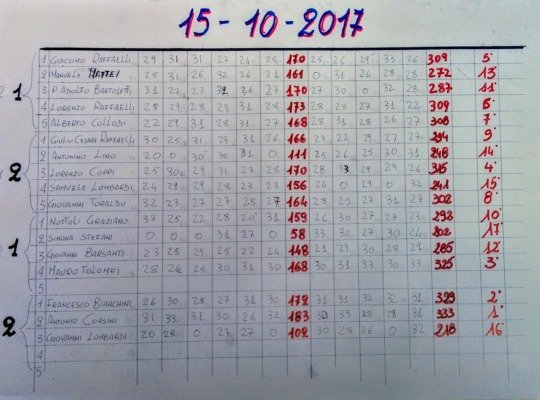 15-10-2017
1 GIACOMO RAFFAELLI 29 31 31 27 24 28 170 25 26 29 33 26 309 5°
2 MATTEI 25 31 26 32 26 21 161 0 31 24 28 28 272 13°
1 3 P. ADOLFO BARTOLETTI 31 27 27 27 170 27 30 0 32 28 287 11°
4 LORENZO RAFFAELLI 28 29 28 29 31 28 173 28 28 27 31 22 309 6°
5 ALBERTO COLLODI 22 29 31 28 31 27 168 28 31 28 27 308 7°
1 GIULIO CESARE RAFFAELLI 30 25 31 23 31 26 166 23 22 29 27 27 294 9°
2 ANTONINO LINO 20 0 30 30 31 0 111 25 26 25 30 31 248 14°
2 3 LORENZO COPPI 25 30 29 31 27 28 170 28 29 30 315 4°
4 SAMUELE LOMBARDI 24 29 29 28 23 23 156 24 0 29 0 32 241 15°
5 GIOVANNI TORALDO 32 23 27 27 28 27 164 28 25 27 31 27 302 8°
1 NOTTOLI GRAZIANO 33 25 22 28 20 31 159 26 30 27 27 23 292 10°
2 SIMONA STEFANI 0 0 0 31 27 0 58 33 30 27 30 24 202 17°
1 3 GIOVANNI BARSANTI 23 25 29 25 22 24 148 21 29 30 28 29 285 12°
4 MAURO TOLOMEI 28 24 25 30 31 30 168 30 31 33 30 33 325 3°
5
1 FRANCESCO BIANCHINI 26 30 28 27 31 30 172 31 31 32 32 31 329 2°
2 2 ANTONIO CORSINI 31 33 31 30 26 32 183 30 33 28 28 31 333 1°
3 GIOVANNI LOMBARDI 20 28 0 27 27 0 102 30 28 26 0 32 218 16°
4
5